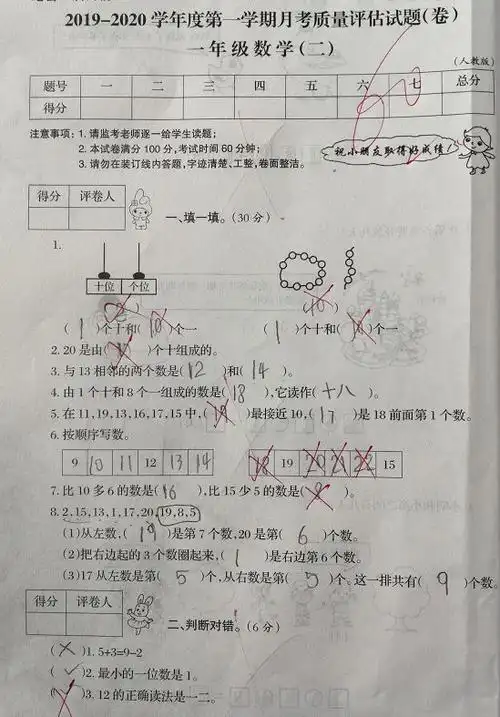 2019-2020 学年度第一学期月考质量评估试题(卷)
一年级数学(二)
(人教版)
题号 一 二 三 四 五 六 七 总分
得分
注意事项: 1. 请监考老师逐一给学生读题;
2. 本试卷满分 100 分,考试时间 60 分钟;
3. 请勿在装订线内答题,字迹清楚、工整,卷面整洁。
祝小朋友取得好成绩!
得分 评卷人
一、填一填。(30 分)
1.
十位 个位
( 1 )个十和( 10 )个一 ( 1 )个十和( )个一
2. 20 是由( )个十组成的。
3. 与 13 相邻的两个数是( 12 )和( 14 )。
4. 由 1 个十和 8 个一组成的数是( 18 ),它读作( 十八 )。
5. 在 11,19,13,16,17,15 中,( )最接近 10,( 17 )是 18 前面第 1 个数。
6. 按顺序写数。
9 10 11 12 13 14 18 19 20 21 22 15
7. 比 10 多 6 的数是( 16 ),比 15 少 5 的数是( )。
8. 2,15,13,1,17,20,19,8,5
(1)从左数,( 19 )是第 7 个数,20 是第( 6 )个数。
(2)把右边起的 3 个数圈起来,( 1 )是右边第 6 个数。
(3)17 从左数是第( 5 )个,从右数是第( 5 )个。这一排共有( 9 )个数。
得分 评卷人
二、判断对错。(6 分)
( × )1. 5+3=9-2
( ✓ )2. 最小的一位数是 1。
( )3. 12 的正确读法是一二。